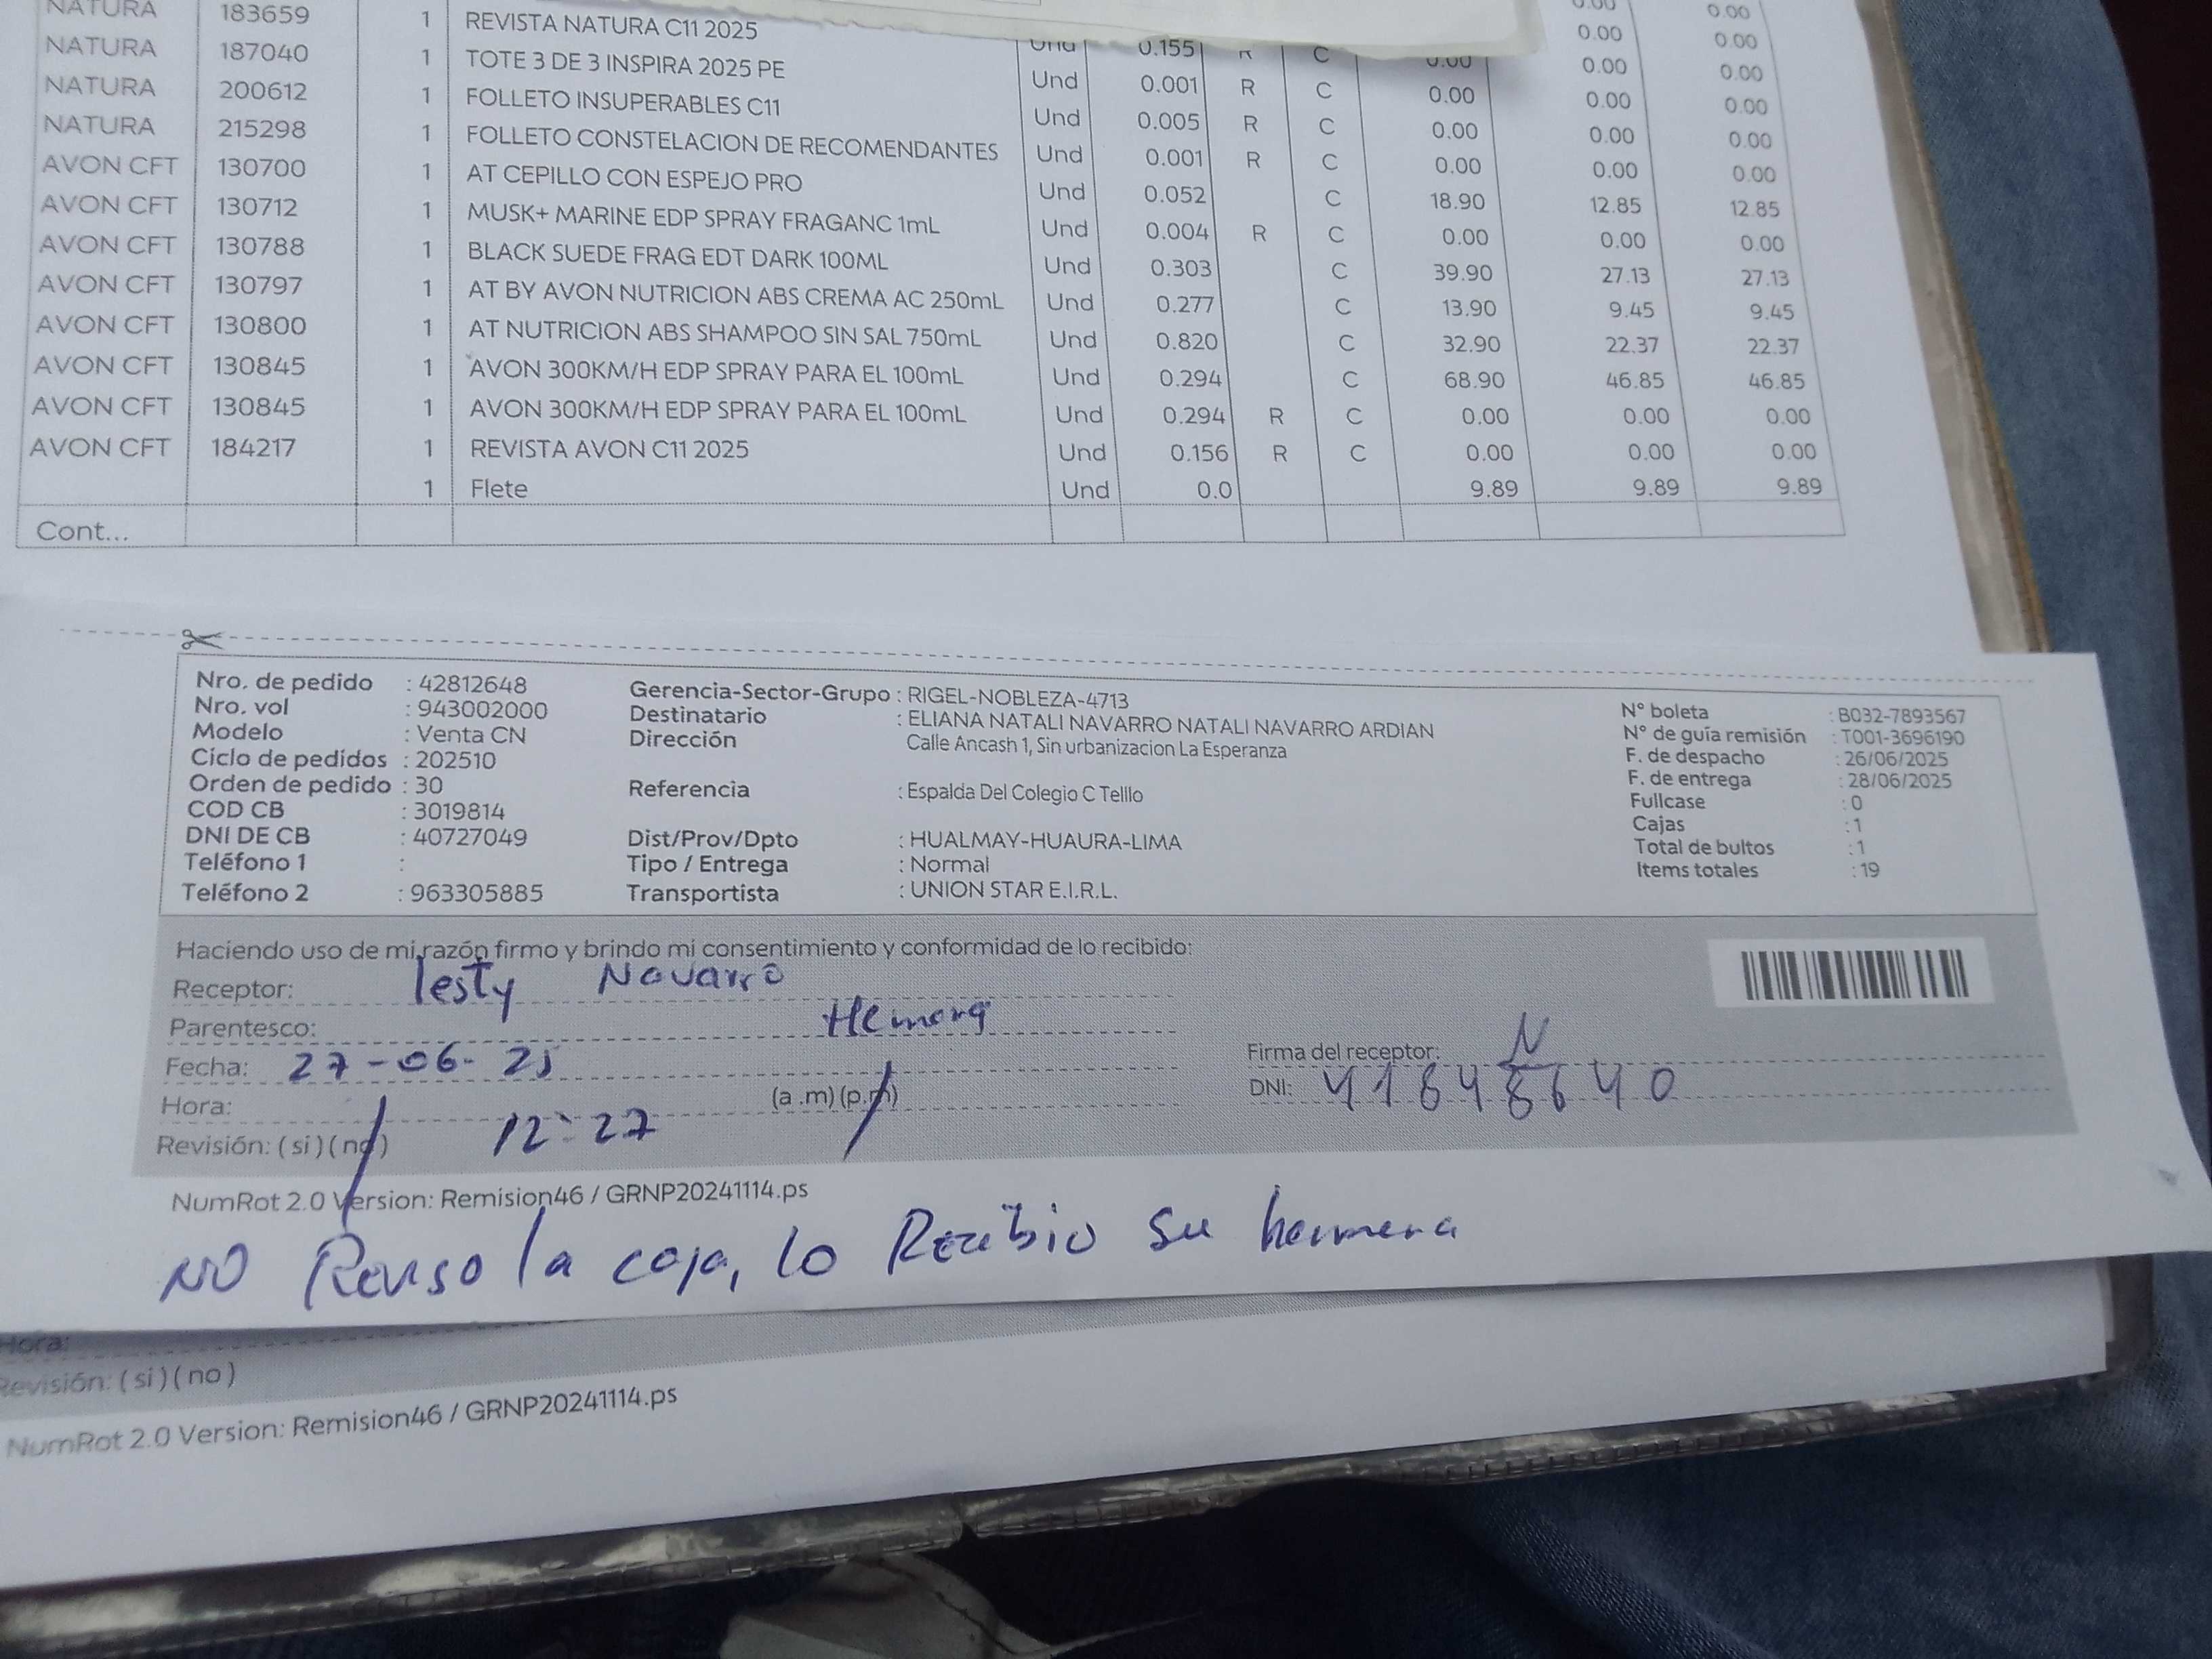 NATURA 183659 1 REVISTA NATURA C11 2025 Und 0.155 R C 0.00 0.00 0.00
NATURA 187040 1 TOTE 3 DE 3 INSPIRA 2025 PE Und 0.001 R C 0.00 0.00 0.00
NATURA 200612 1 FOLLETO INSUPERABLES C11 Und 0.005 R C 0.00 0.00 0.00
NATURA 215298 1 FOLLETO CONSTELACION DE RECOMENDANTES Und 0.001 R C 0.00 0.00 0.00
AVON CFT 130700 1 AT CEPILLO CON ESPEJO PRO Und 0.052 C 18.90 12.85 12.85
AVON CFT 130712 1 MUSK+ MARINE EDP SPRAY FRAGANC 1mL Und 0.004 R C 0.00 0.00 0.00
AVON CFT 130788 1 BLACK SUEDE FRAG EDT DARK 100ML Und 0.303 C 39.90 27.13 27.13
AVON CFT 130797 1 AT BY AVON NUTRICION ABS CREMA AC 250mL Und 0.277 C 13.90 9.45 9.45
AVON CFT 130800 1 AT NUTRICION ABS SHAMPOO SIN SAL 750mL Und 0.820 C 32.90 22.37 22.37
AVON CFT 130845 1 AVON 300KM/H EDP SPRAY PARA EL 100mL Und 0.294 C 68.90 46.85 46.85
AVON CFT 130845 1 AVON 300KM/H EDP SPRAY PARA EL 100mL Und 0.294 R C 0.00 0.00 0.00
AVON CFT 184217 1 REVISTA AVON C11 2025 Und 0.156 R C 0.00 0.00 0.00
1 Flete Und 0.0 9.89 9.89 9.89
Cont...
Nro. de pedido : 42812648 Gerencia-Sector-Grupo : RIGEL-NOBLEZA-4713 N° boleta : B032-7893567
Nro. vol : 943002000 Destinatario : ELIANA NATALI NAVARRO NATALI NAVARRO ARDIAN N° de guía remisión : T001-3696190
Modelo : Venta CN Dirección Calle Ancash 1, Sin urbanizacion La Esperanza F. de despacho : 26/06/2025
Ciclo de pedidos : 202510 F. de entrega : 28/06/2025
Orden de pedido : 30 Referencia : Espalda Del Colegio C Telllo Fullcase : 0
COD CB : 3019814 Cajas : 1
DNI DE CB : 40727049 Dist/Prov/Dpto : HUALMAY-HUAURA-LIMA Total de bultos : 1
Teléfono 1 : Tipo / Entrega : Normal Items totales : 19
Teléfono 2 : 963305885 Transportista : UNION STAR E.I.R.L.
Haciendo uso de mi razón firmo y brindo mi consentimiento y conformidad de lo recibido:
Receptor: lesty Navarro
Parentesco: Hemana
Fecha: 27-06-25 Firma del receptor: N
Hora: 12:27 (a .m) (p.m) DNI:
Revisión: ( si ) ( no )
NumRot 2.0 Version: Remision46 / GRNP20241114.ps
NO Reviso la caja, lo Recibio su hermana
Hora:
Revisión: ( si ) ( no )
NumRot 2.0 Version: Remision46 / GRNP20241114.ps